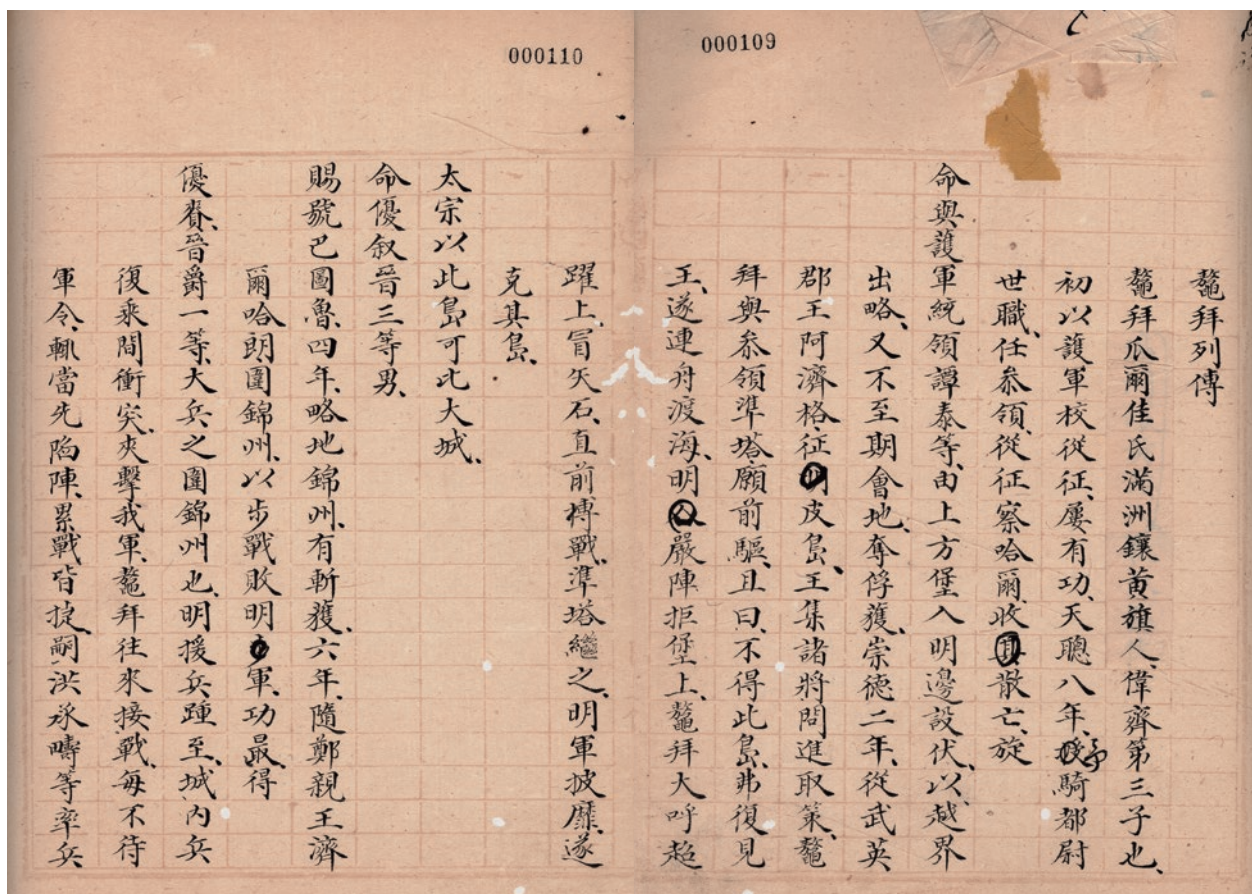 000109
鼇拜列傳
鼇拜瓜爾佳氏滿洲鑲黃旗人、偉齊第三子也、
初以護軍校從征、屢有功、天聰八年、予騎都尉
世職、任叅領、從征察哈爾、收其散亡、旋
命與護軍統領譚泰等、由上方堡入明邊設伏、以越界
出略、又不至期會地、奪俘獲、崇德二年、從武英
郡王阿濟格、征明皮島、王集諸將問進取策、鼇
拜與叅領準塔願前驅、且曰、不得此島、弗復見
王、遂連舟渡海、明人嚴陣拒堡上、鼇拜大呼超
000110
躍上、冐矢石、直前搏戰、準塔繼之、明軍披靡、遂
克其島、
太宗以此島可比大城、
命優叙晉三等男、
賜號巴圖魯、四年、略地錦州、有斬獲、六年、隨鄭親王濟
爾哈朗圍錦州、以步戰敗明軍、功最、得
優賚、晉爵一等、大兵之圍錦州也、明援兵踵至、城內兵
復乘間衝突、夾擊我軍、鼇拜往來接戰、每不待
軍令、輒當先陷陣、累戰皆捷、嗣洪承疇等率兵